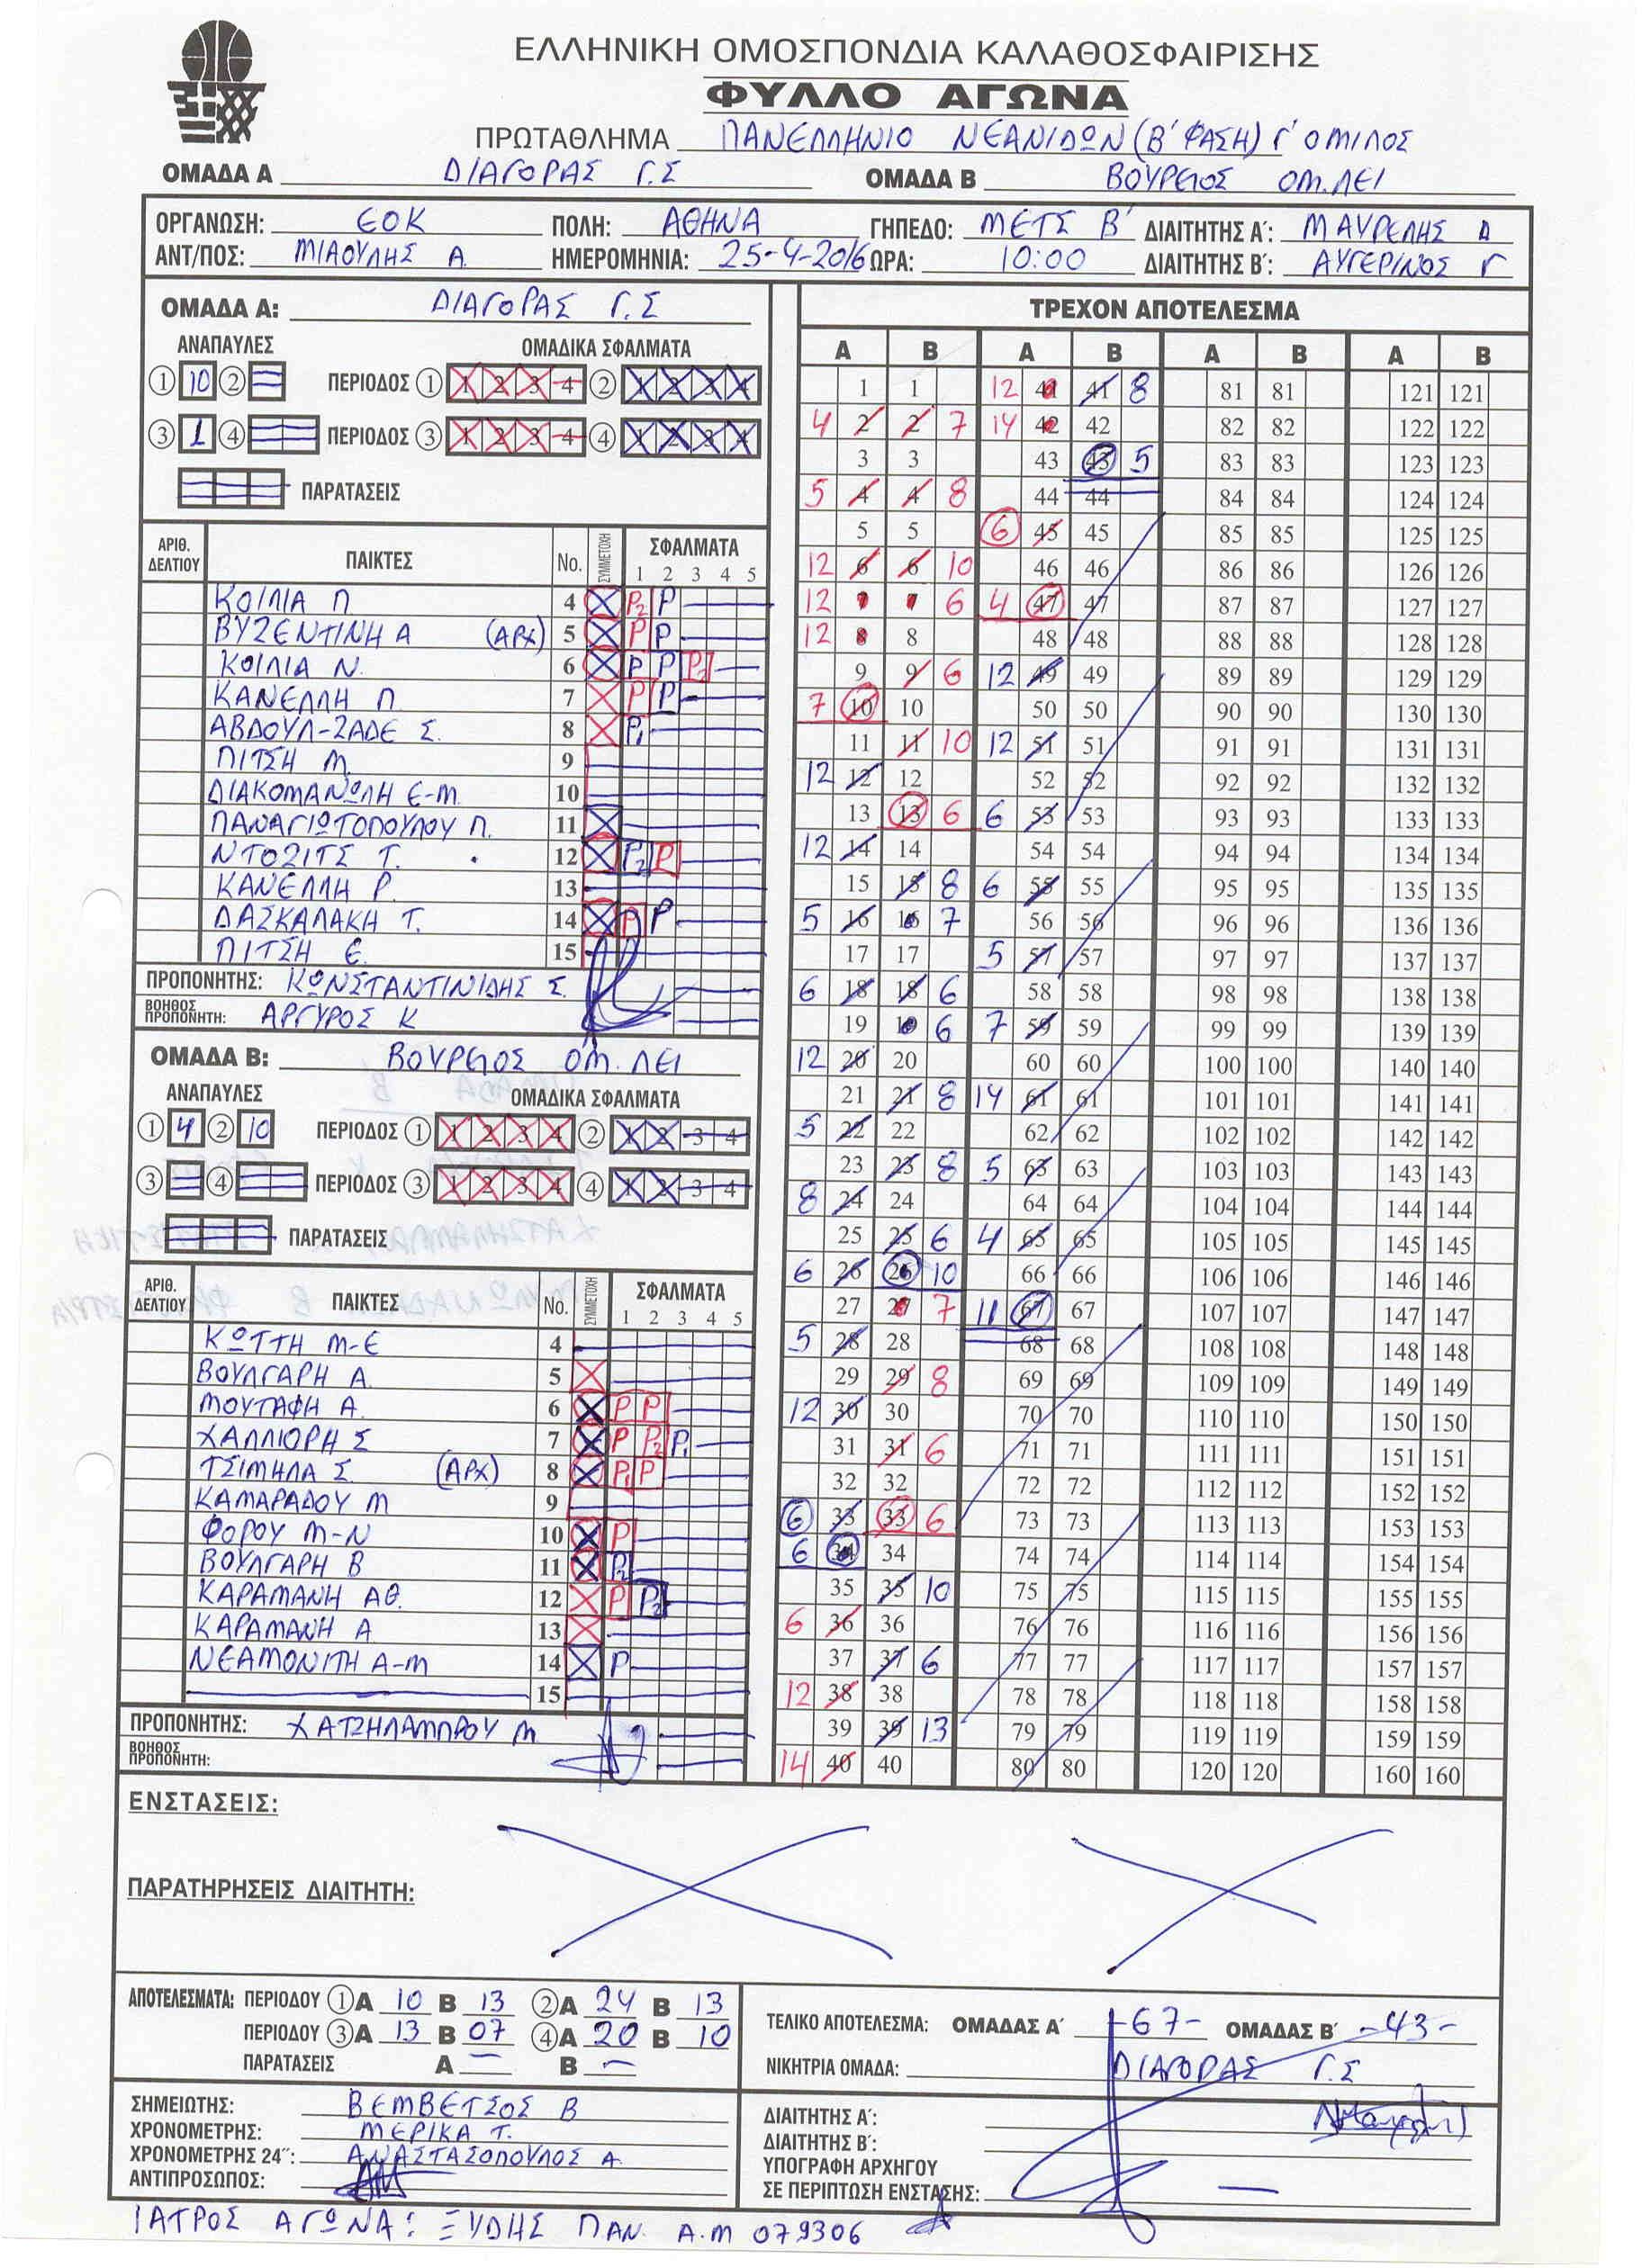 ΕΛΛΗΝΙΚΗ ΟΜΟΣΠΟΝΔΙΑ ΚΑΛΑΘΟΣΦΑΙΡΙΣΗΣ
ΦΥΛΛΟ ΑΓΩΝΑ
ΠΡΩΤΑΘΛΗΜΑ ΠΑΝΕΛΛΗΝΙΟ ΝΕΑΝΙΔΩΝ (Β' ΦΑΣΗ) Γ' ΟΜΙΛΟΣ
ΟΜΑΔΑ Α ΔΙΑΓΟΡΑΣ Γ.Σ ΟΜΑΔΑ Β ΒΟΥΡΕΙΟΣ ΟΜ.ΛΕΙ
ΟΡΓΑΝΩΣΗ: ΕΟΚ ΠΟΛΗ: ΑΘΗΝΑ ΓΗΠΕΔΟ: ΜΕΤΣ Β' ΔΙΑΙΤΗΤΗΣ Α': ΜΑΥΡΕΛΗΣ Δ
ΑΝΤ/ΠΟΣ: ΜΙΑΟΥΛΗΣ Α. ΗΜΕΡΟΜΗΝΙΑ: 25-4-2016 ΩΡΑ: 10:00 ΔΙΑΙΤΗΤΗΣ Β': ΑΥΓΕΡΙΝΟΣ Γ
ΟΜΑΔΑ Α: ΔΙΑΓΟΡΑΣ Γ.Σ
ΑΝΑΠΑΥΛΕΣ ΟΜΑΔΙΚΑ ΣΦΑΛΜΑΤΑ
1 10 2 ΠΕΡΙΟΔΟΣ 1 1 2 3 4 2 1 2 3 4
3 1 4 ΠΕΡΙΟΔΟΣ 3 1 2 3 4 4 1 2 3 4
ΠΑΡΑΤΑΣΕΙΣ
ΑΡΙΘ. ΔΕΛΤΙΟΥ ΠΑΙΚΤΕΣ No. ΣΥΜΜΕΤΟΧΗ ΣΦΑΛΜΑΤΑ 1 2 3 4 5
ΚΟΙΛΙΑ Π 4 P2 P
ΒΥΖΕΝΤΙΝΗ Α (ΑΡΧ) 5 P P
ΚΟΙΛΙΑ Ν. 6 P P P2
ΚΑΝΕΛΛΗ Π 7 P P
ΑΒΔΟΥΛ-ΖΑΔΕ Σ. 8 P1
ΠΙΤΣΗ Μ. 9
ΔΙΑΚΟΜΑΝΩΛΗ Ε-Μ. 10
ΠΑΝΑΓΙΩΤΟΠΟΥΛΟΥ Π. 11
ΝΤΟΖΙΤΣ Τ. 12 P2 P
ΚΑΝΕΛΛΗ Ρ. 13
ΔΑΣΚΑΛΑΚΗ Τ. 14 P P
ΠΙΤΣΗ Ε. 15
ΠΡΟΠΟΝΗΤΗΣ: ΚΩΝΣΤΑΝΤΙΝΙΔΗΣ Σ.
ΒΟΗΘΟΣ ΠΡΟΠΟΝΗΤΗ: ΑΡΓΥΡΟΣ Κ
ΟΜΑΔΑ Β: ΒΟΥΡΕΙΟΣ ΟΜ.ΛΕΙ
ΑΝΑΠΑΥΛΕΣ ΟΜΑΔΙΚΑ ΣΦΑΛΜΑΤΑ
1 4 2 10 ΠΕΡΙΟΔΟΣ 1 1 2 3 4 2 1 2 3 4
3 4 ΠΕΡΙΟΔΟΣ 3 1 2 3 4 4 1 2 3 4
ΠΑΡΑΤΑΣΕΙΣ
ΑΡΙΘ. ΔΕΛΤΙΟΥ ΠΑΙΚΤΕΣ No. ΣΥΜΜΕΤΟΧΗ ΣΦΑΛΜΑΤΑ 1 2 3 4 5
ΚΩΤΤΗ Μ-Ε 4
ΒΟΥΛΓΑΡΗ Α. 5
ΜΟΥΤΑΦΗ Α. 6 P P
ΧΑΛΛΙΟΡΗ Σ 7 P P2 P1
ΤΣΙΜΗΛΑ Σ. (ΑΡΧ) 8 P1 P
ΚΑΜΑΡΑΔΟΥ Μ 9
ΦΟΡΟΥ Μ-Ν 10 P
ΒΟΥΛΓΑΡΗ Β 11 P2
ΚΑΡΑΜΑΝΗ ΑΘ. 12 P P2
ΚΑΡΑΜΑΝΗ Α 13
ΝΕΑΜΟΝΙΤΗ Α-Μ 14 P
15
ΠΡΟΠΟΝΗΤΗΣ: ΧΑΤΖΗΛΑΜΠΡΟΥ Μ
ΒΟΗΘΟΣ ΠΡΟΠΟΝΗΤΗ:
ΤΡΕΧΟΝ ΑΠΟΤΕΛΕΣΜΑ
Α Β Α Β Α Β Α Β
1 1 12 41 41 8 81 81 121 121
4 2 2 7 14 42 42 82 82 122 122
3 3 43 43 5 83 83 123 123
5 4 4 8 44 44 84 84 124 124
5 5 6 45 45 85 85 125 125
12 6 6 10 46 46 86 86 126 126
12 7 7 6 4 47 47 87 87 127 127
12 8 8 48 48 88 88 128 128
9 9 6 12 49 49 89 89 129 129
7 10 10 50 50 90 90 130 130
11 11 10 12 51 51 91 91 131 131
12 12 12 52 52 92 92 132 132
13 13 6 6 53 53 93 93 133 133
12 14 14 54 54 94 94 134 134
15 15 8 6 55 55 95 95 135 135
5 16 16 7 56 56 96 96 136 136
17 17 5 57 57 97 97 137 137
6 18 18 6 58 58 98 98 138 138
19 19 6 7 59 59 99 99 139 139
12 20 20 60 60 100 100 140 140
21 21 8 14 61 61 101 101 141 141
5 22 22 62 62 102 102 142 142
23 23 8 5 63 63 103 103 143 143
8 24 24 64 64 104 104 144 144
25 25 6 4 65 65 105 105 145 145
6 26 26 10 66 66 106 106 146 146
27 27 7 11 67 67 107 107 147 147
5 28 28 68 68 108 108 148 148
29 29 8 69 69 109 109 149 149
12 30 30 70 70 110 110 150 150
31 31 6 71 71 111 111 151 151
32 32 72 72 112 112 152 152
6 33 33 6 73 73 113 113 153 153
6 34 34 74 74 114 114 154 154
35 35 10 75 75 115 115 155 155
6 36 36 76 76 116 116 156 156
37 37 6 77 77 117 117 157 157
12 38 38 78 78 118 118 158 158
39 39 13 79 79 119 119 159 159
14 40 40 80 80 120 120 160 160
ΕΝΣΤΑΣΕΙΣ:
ΠΑΡΑΤΗΡΗΣΕΙΣ ΔΙΑΙΤΗΤΗ:
ΑΠΟΤΕΛΕΣΜΑΤΑ: ΠΕΡΙΟΔΟΥ 1 Α 10 Β 13 2 Α 24 Β 13
ΠΕΡΙΟΔΟΥ 3 Α 13 Β 07 4 Α 20 Β 10
ΠΑΡΑΤΑΣΕΙΣ Α — Β —
ΤΕΛΙΚΟ ΑΠΟΤΕΛΕΣΜΑ: ΟΜΑΔΑΣ Α' -67- ΟΜΑΔΑΣ Β' -43-
ΝΙΚΗΤΡΙΑ ΟΜΑΔΑ: ΔΙΑΓΟΡΑΣ Γ.Σ
ΣΗΜΕΙΩΤΗΣ: ΒΕΜΒΕΤΣΟΣ Β
ΧΡΟΝΟΜΕΤΡΗΣ: ΜΕΡΙΚΑ Τ.
ΧΡΟΝΟΜΕΤΡΗΣ 24": ΑΝΑΣΤΑΣΟΠΟΥΛΟΣ Α.
ΑΝΤΙΠΡΟΣΩΠΟΣ:
ΔΙΑΙΤΗΤΗΣ Α':
ΔΙΑΙΤΗΤΗΣ Β':
ΥΠΟΓΡΑΦΗ ΑΡΧΗΓΟΥ
ΣΕ ΠΕΡΙΠΤΩΣΗ ΕΝΣΤΑΣΗΣ: —
ΙΑΤΡΟΣ ΑΓΩΝΑ: ΞΥΔΗΣ ΠΑΝ. Α.Μ 079306